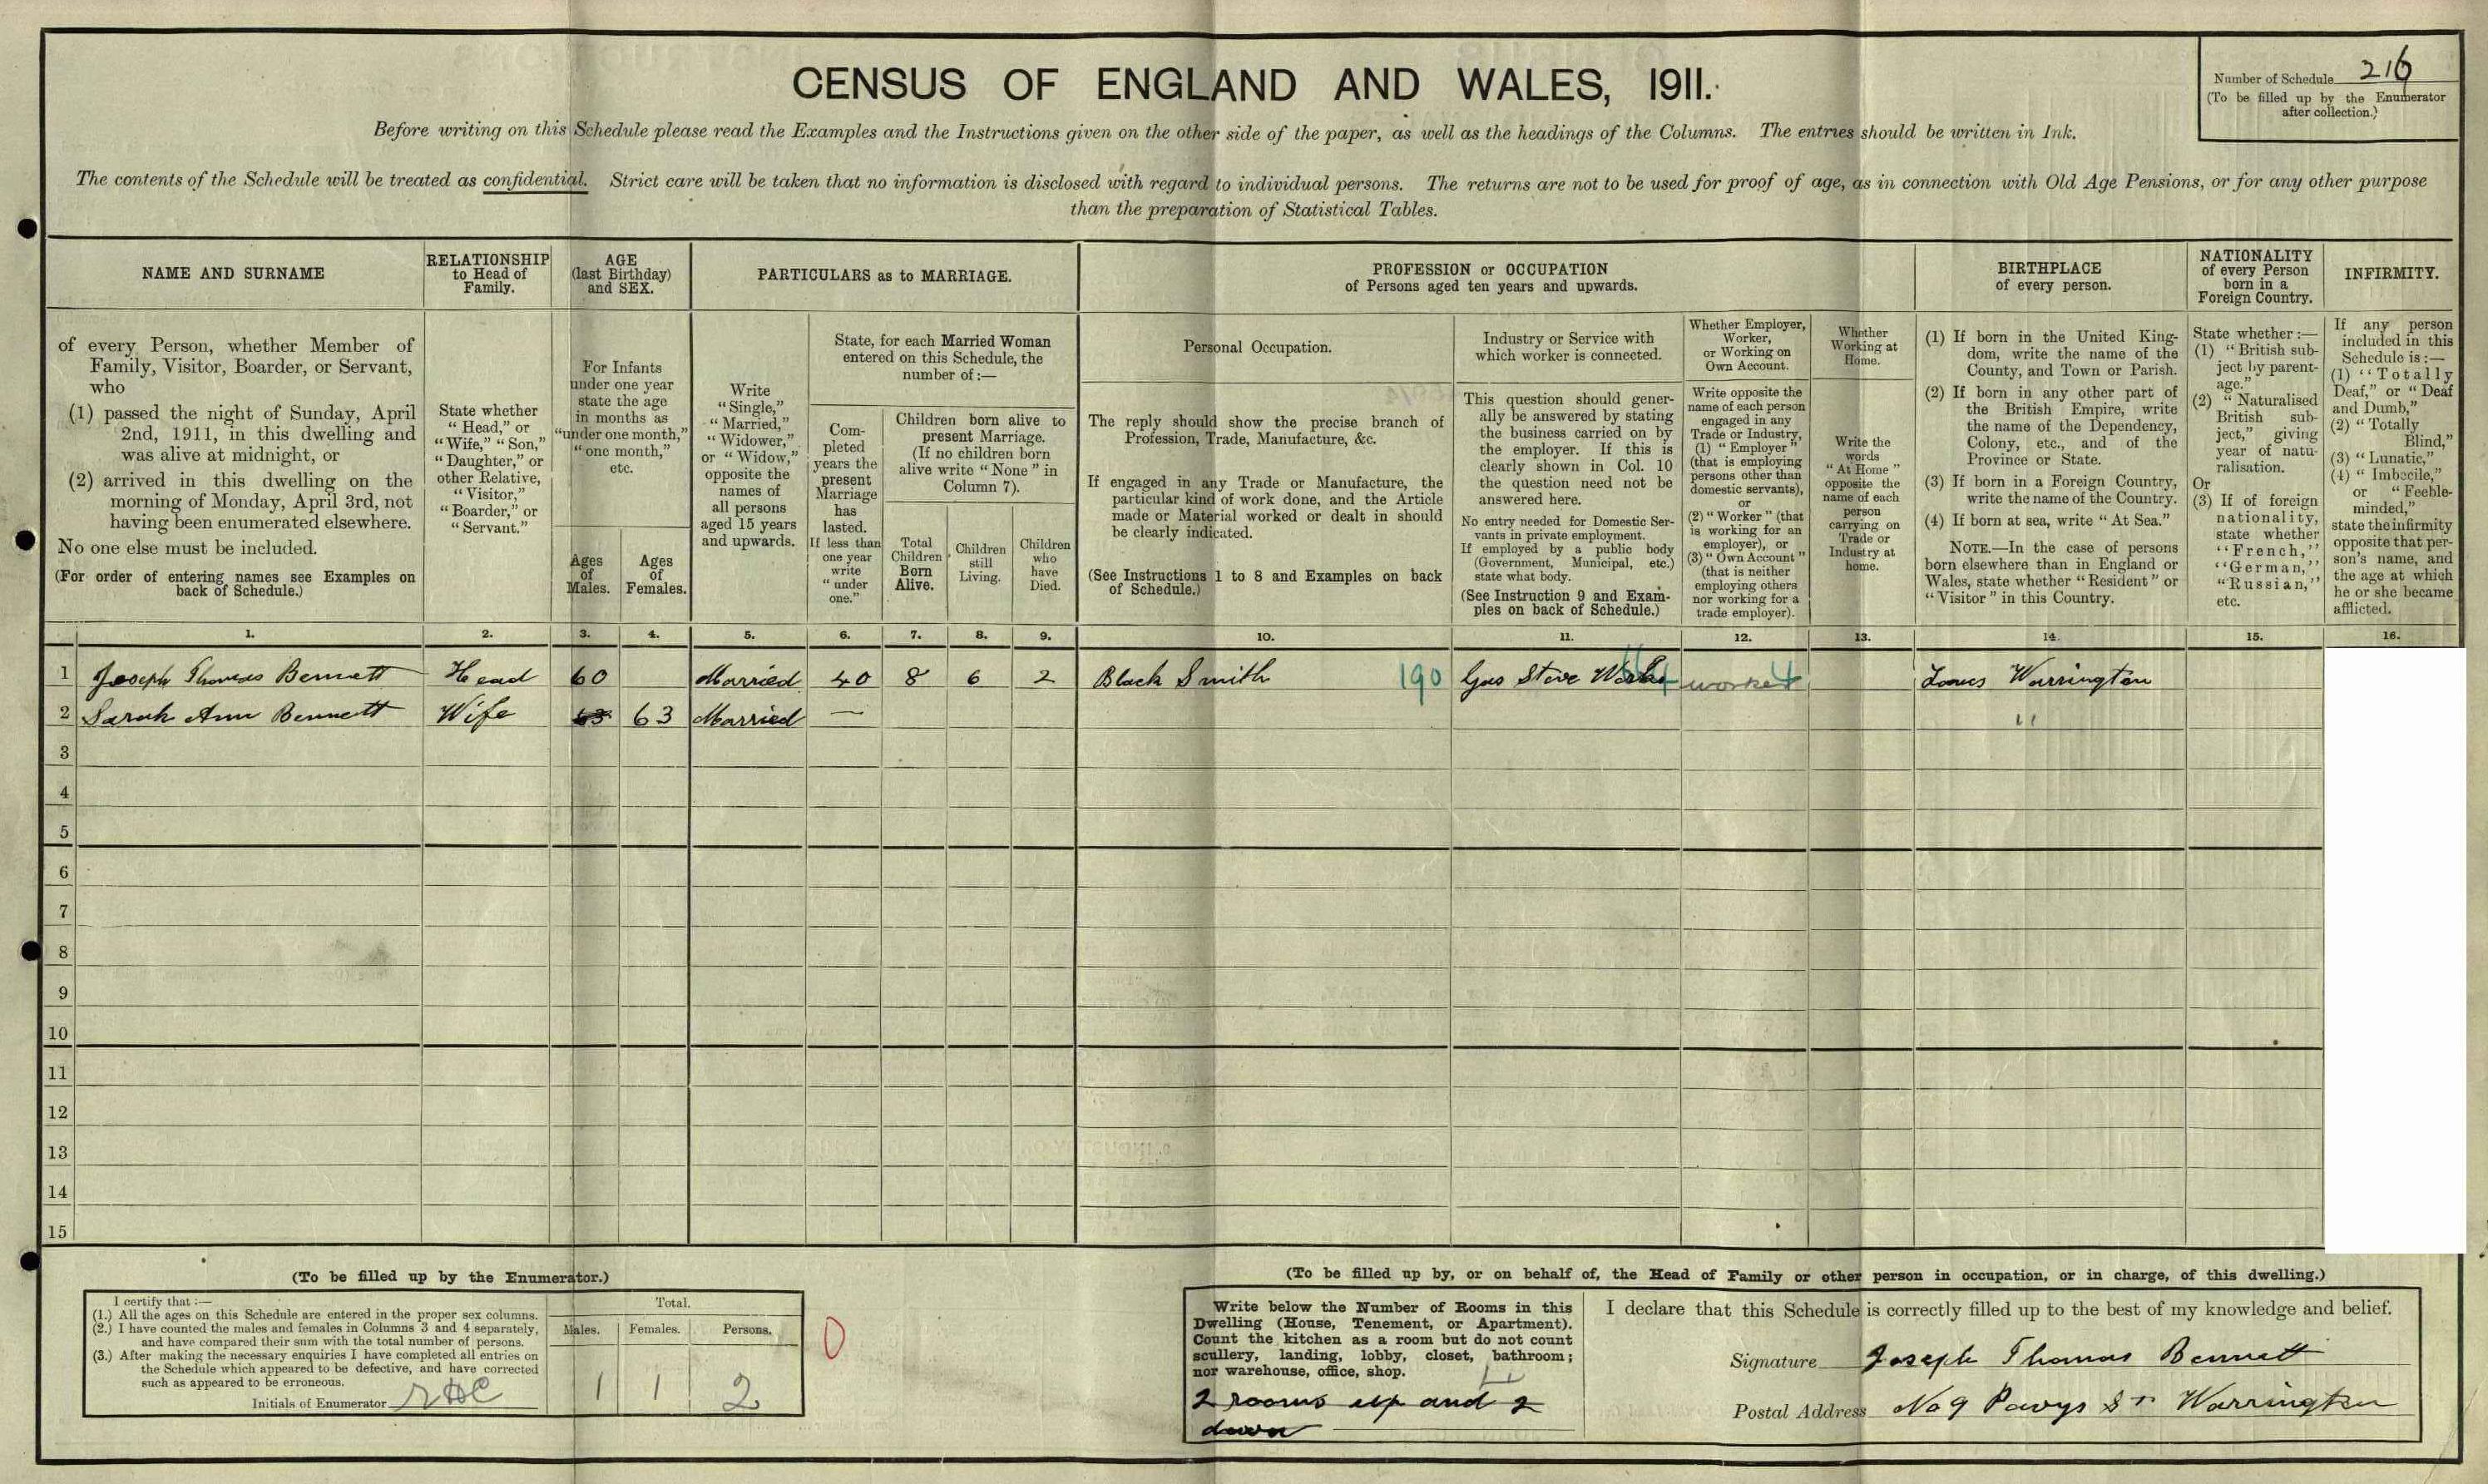 CENSUS OF ENGLAND AND WALES, 1911.
Number of Schedule 216
(To be filled up by the Enumerator
after collection.)
Before writing on this Schedule please read the Examples and the Instructions given on the other side of the paper, as well as the headings of the Columns. The entries should be written in Ink.
The contents of the Schedule will be treated as confidential. Strict care will be taken that no information is disclosed with regard to individual persons. The returns are not to be used for proof of age, as in connection with Old Age Pensions, or for any other purpose
than the preparation of Statistical Tables.
NAME AND SURNAME
of every Person, whether Member of
Family, Visitor, Boarder, or Servant,
who
(1) passed the night of Sunday, April
2nd, 1911, in this dwelling and
was alive at midnight, or
(2) arrived in this dwelling on the
morning of Monday, April 3rd, not
having been enumerated elsewhere.
No one else must be included.
(For order of entering names see Examples on
back of Schedule.)
RELATIONSHIP
to Head of
Family.
State whether
"Head," or
"Wife," "Son,"
"Daughter," or
other Relative,
"Visitor,"
"Boarder," or
"Servant."
AGE
(last Birthday)
and SEX.
For Infants
under one year
state the age
in months as
"under one month,"
"one month,"
etc.
Ages
of
Males.
Ages
of
Females.
PARTICULARS as to MARRIAGE.
Write
"Single,"
"Married,"
"Widower,"
or "Widow,"
opposite the
names of
all persons
aged 15 years
and upwards.
State, for each Married Woman
entered on this Schedule, the
number of:—
Com-
pleted
years the
present
Marriage
has
lasted.
If less than
one year
write
"under
one."
Children born alive to
present Marriage.
(If no children born
alive write "None" in
Column 7).
Total
Children
Born
Alive.
Children
still
Living.
Children
who
have
Died.
PROFESSION or OCCUPATION
of Persons aged ten years and upwards.
Personal Occupation.
The reply should show the precise branch of
Profession, Trade, Manufacture, &c.
If engaged in any Trade or Manufacture, the
particular kind of work done, and the Article
made or Material worked or dealt in should
be clearly indicated.
(See Instructions 1 to 8 and Examples on back
of Schedule.)
Industry or Service with
which worker is connected.
This question should gener-
ally be answered by stating
the business carried on by
the employer. If this is
clearly shown in Col. 10
the question need not be
answered here.
No entry needed for Domestic Ser-
vants in private employment.
If employed by a public body
(Government, Municipal, etc.)
state what body.
(See Instruction 9 and Exam-
ples on back of Schedule.)
Whether Employer,
Worker,
or Working on
Own Account.
Write opposite the
name of each person
engaged in any
Trade or Industry,
(1) "Employer"
(that is employing
persons other than
domestic servants),
or
(2) "Worker" (that
is working for an
employer), or
(3) "Own Account"
(that is neither
employing others
nor working for a
trade employer).
Whether
Working at
Home.
Write the
words
"At Home"
opposite the
name of each
person
carrying on
Trade or
Industry at
home.
BIRTHPLACE
of every person.
(1) If born in the United King-
dom, write the name of the
County, and Town or Parish.
(2) If born in any other part of
the British Empire, write
the name of the Dependency,
Colony, etc., and of the
Province or State.
(3) If born in a Foreign Country,
write the name of the Country.
(4) If born at sea, write "At Sea."
NOTE.—In the case of persons
born elsewhere than in England or
Wales, state whether "Resident" or
"Visitor" in this Country.
NATIONALITY
of every Person
born in a
Foreign Country.
State whether:—
(1) "British sub-
ject by parent-
age."
(2) "Naturalised
British sub-
ject," giving
year of natu-
ralisation.
Or
(3) If of foreign
nationality,
state whether
"French,"
"German,"
"Russian,"
etc.
INFIRMITY.
If any person
included in this
Schedule is:—
(1) "Totally
Deaf," or "Deaf
and Dumb,"
(2) "Totally
Blind,"
(3) "Lunatic,"
(4) "Imbecile,"
or "Feeble-
minded,"
state the infirmity
opposite that per-
son's name, and
the age at which
he or she became
afflicted.
1. 2. 3. 4. 5. 6. 7. 8. 9. 10. 11. 12. 13. 14. 15. 16.
1 Joseph Thomas Bennett Head 60 Married 40 8 6 2 Black Smith 190 Gas Stove Works worker Lancs Warrington
2 Sarah Ann Bennett Wife 63 63 Married — "
3
4
5
6
7
8
9
10
11
12
13
14
15
(To be filled up by the Enumerator.)
I certify that:—
(1.) All the ages on this Schedule are entered in the proper sex columns.
(2.) I have counted the males and females in Columns 3 and 4 separately,
and have compared their sum with the total number of persons.
(3.) After making the necessary enquiries I have completed all entries on
the Schedule which appeared to be defective, and have corrected
such as appeared to be erroneous.
Initials of Enumerator
Total.
Males. Females. Persons.
1 1 2
0
(To be filled up by, or on behalf of, the Head of Family or other person in occupation, or in charge, of this dwelling.)
Write below the Number of Rooms in this
Dwelling (House, Tenement, or Apartment).
Count the kitchen as a room but do not count
scullery, landing, lobby, closet, bathroom;
nor warehouse, office, shop.
4
2 rooms up and 2
down
I declare that this Schedule is correctly filled up to the best of my knowledge and belief.
Signature Joseph Thomas Bennett
Postal Address No 9 Pavys St Warrington